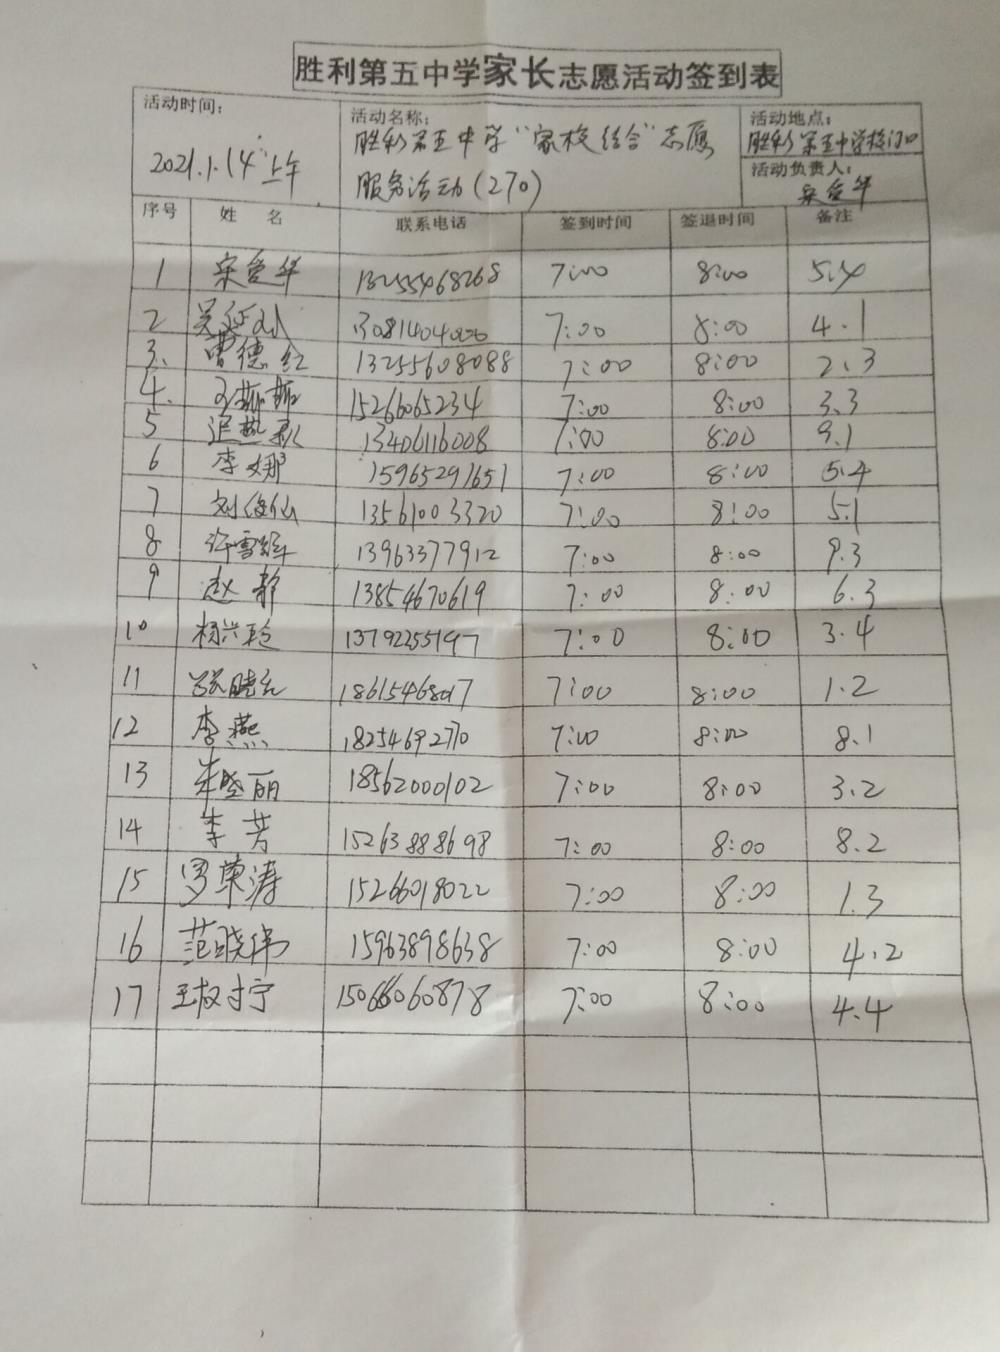 胜利第五中学家长志愿活动签到表
活动时间：
2021.1.14上午
活动名称：
胜利第五中学"家校结合"志愿
服务活动(270)
活动地点：
胜利第五中学校门口
活动负责人：
宋爱华
序号 姓 名 联系电话 签到时间 签退时间 备注
1 宋爱华 13255468268 7:00 8:00 5.4
2 7:00 8:00 4.1
3、 曹德红 13255608088 7:00 8:00 2.3
4. 15266065234 7:00 8:00 3.3
5 13406116008 7:00 8:00 9.1
6 李娜 15965291651 7:00 8:00 5.4
7 刘俊仙 13561003320 7:00 8:00 5.1
8 许雪辉 13963377912 7:00 8:00 9.3
9 赵静 13854670619 7:00 8:00 6.3
10 杨兴玲 13792255197 7:00 8:00 3.4
11 18615468017 7:00 8:00 1.2
12 李燕 18254692770 7:00 8:00 8.1
13 朱晓丽 18562000102 7:00 8:00 3.2
14 李芳 15263888698 7:00 8:00 8.2
15 罗荣涛 15266018022 7:00 8:00 1.3
16 范晓伟 15963898638 7:00 8:00 4.2
17 15066060878 7:00 8:00 4.4